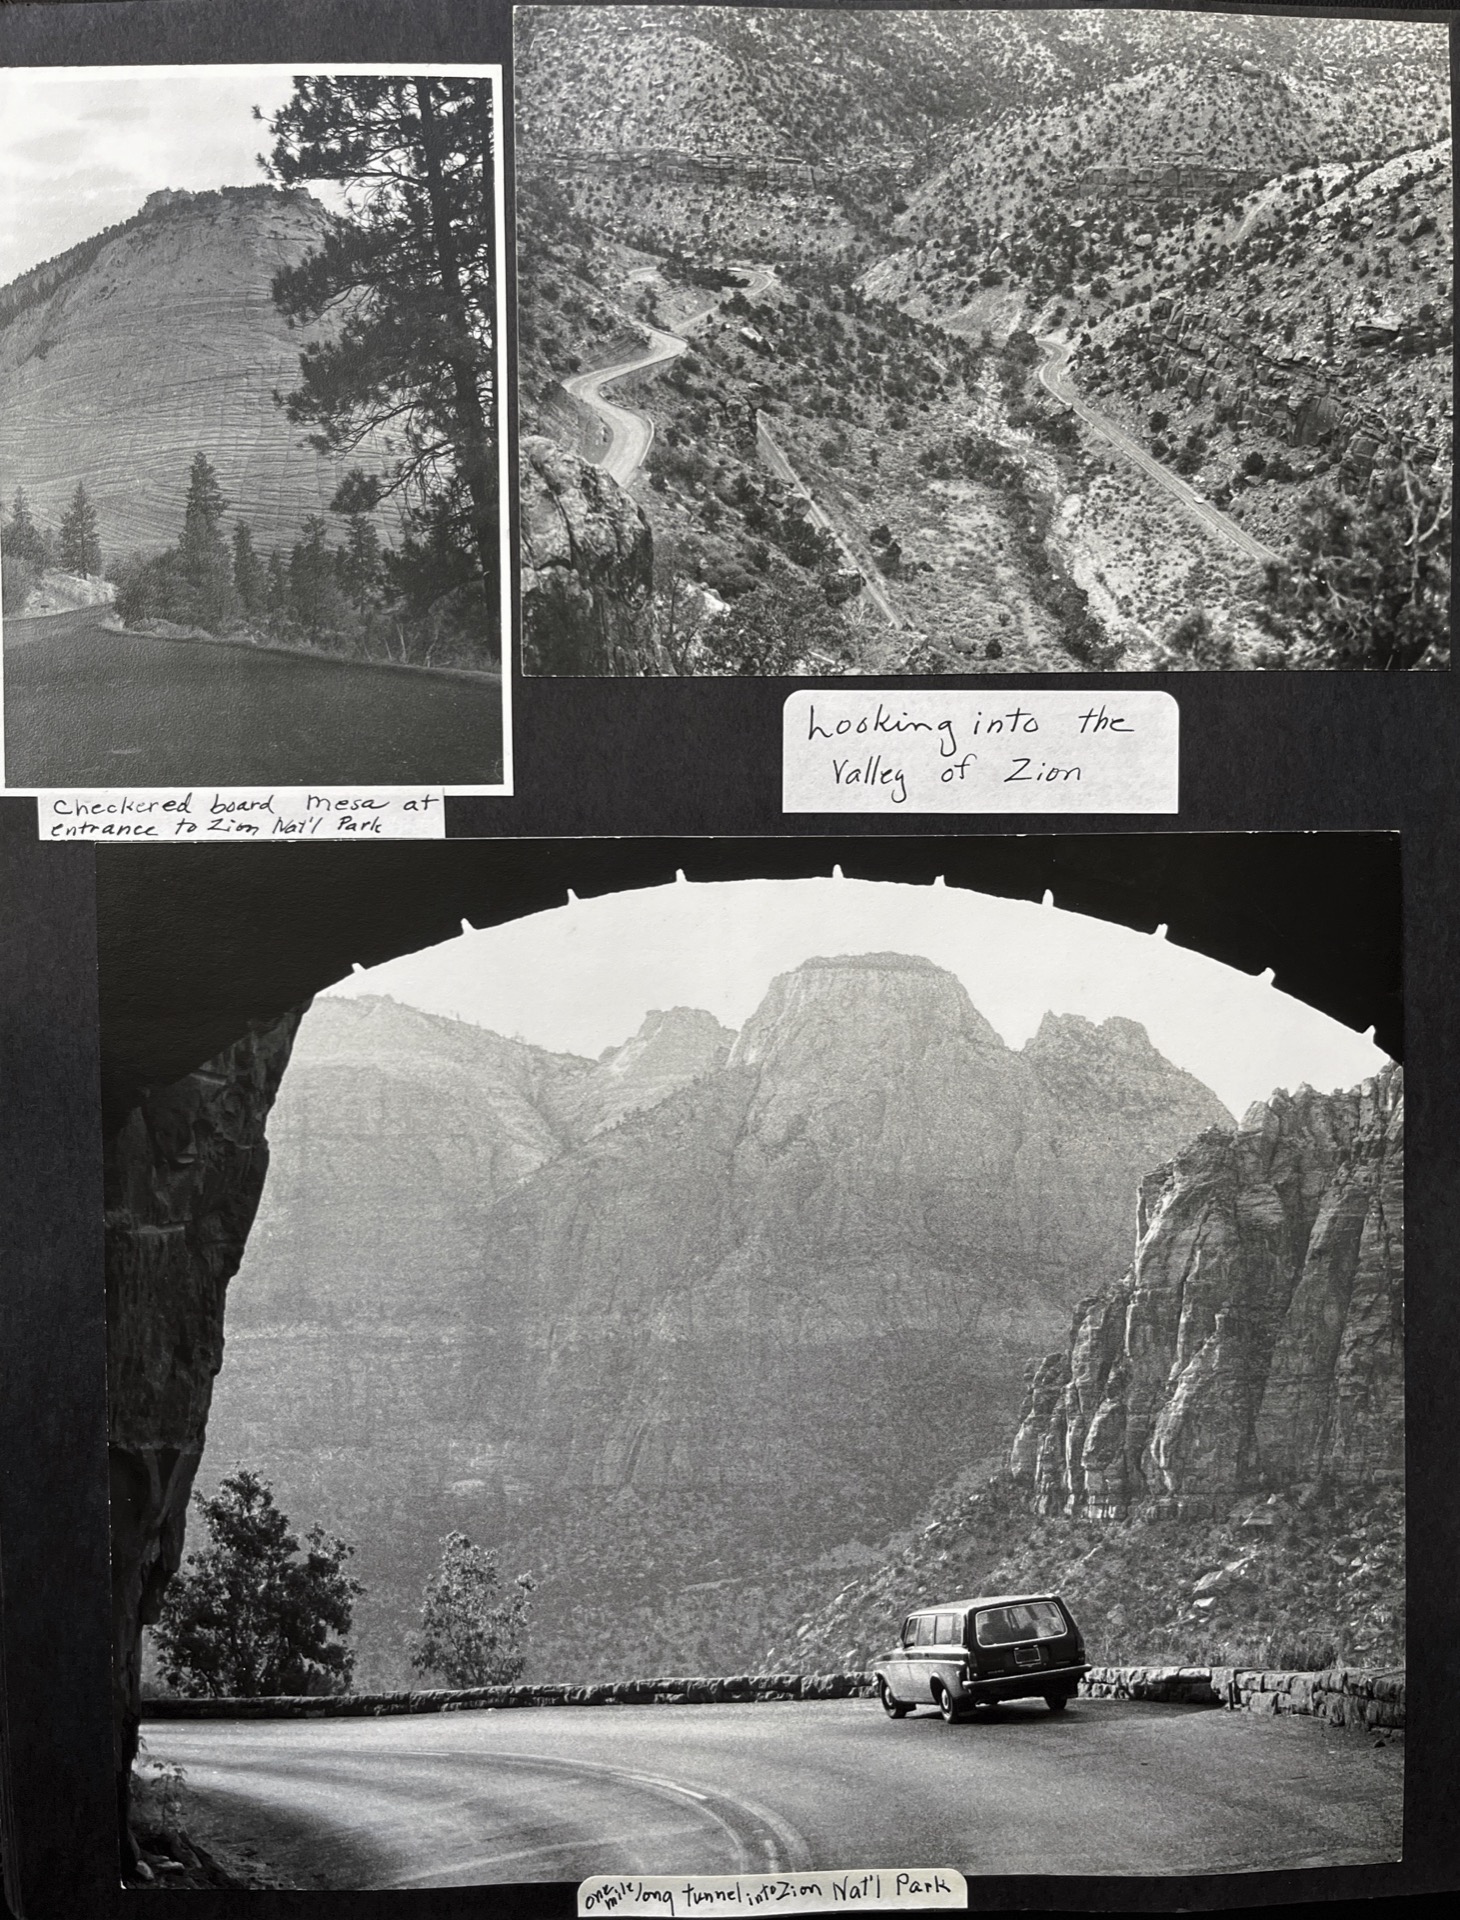 Checkered board mesa at
entrance to Zion Nat'l Park
Looking into the
Valley of Zion
one mile long tunnel into Zion Nat'l Park